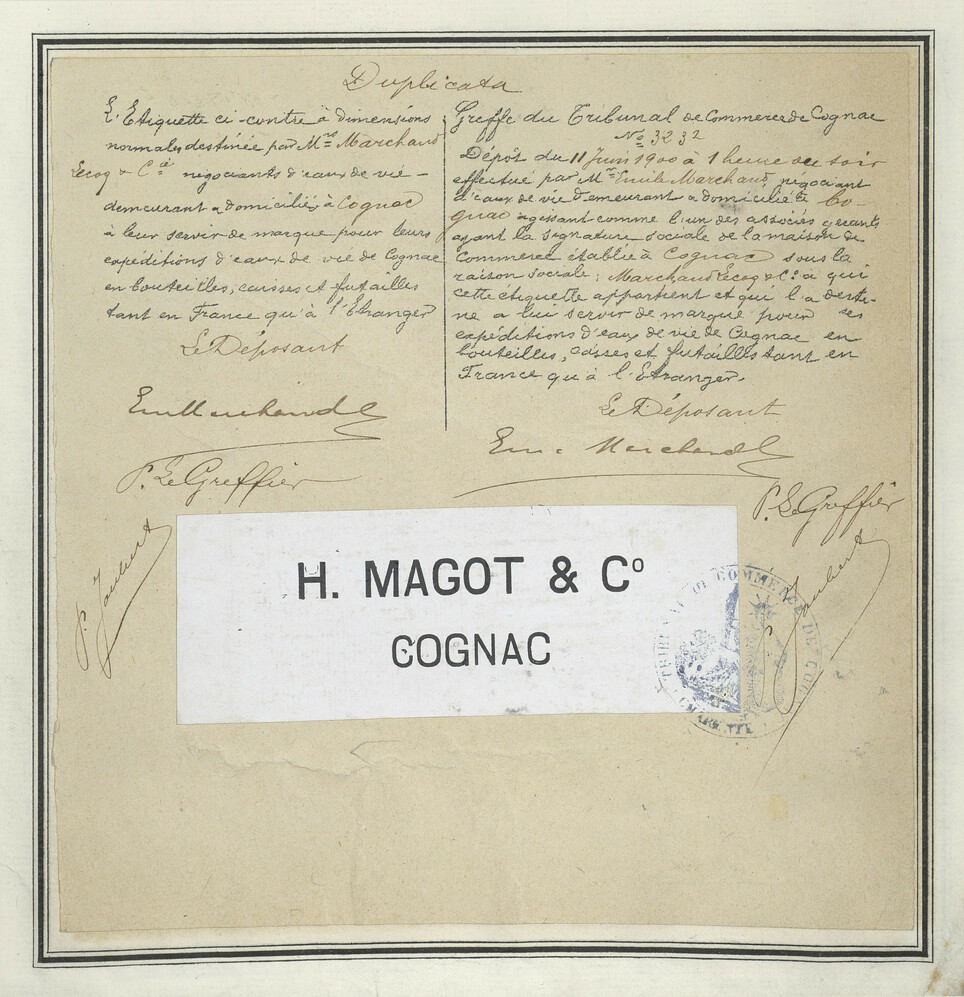 Duplicata
L'Etiquette ci-contre à dimensions
normales destinée par Mrs Marchand
Lecoq & Cie négociants d'eaux de vie -
demeurant & domiciliés à Cognac
à leur servir de marque pour leurs
expéditions d'eaux de vie de Cognac
en bouteilles, caisses et futailles
tant en France qu'à l'Etranger
Le Déposant
Em Marchand
P. Le Greffier
P. Joubert
Greffe du Tribunal de Commerce de Cognac
No 3232
Dépôt du 11 Juin 1900 à 1 heure du soir
effectué par Mr Emile Marchand, négociant
d'eaux de vie demeurant & domicilié à Co-
gnac agissant comme l'un des associés gérants
ayant la signature sociale de la maison de
Commerce établie à Cognac sous la
raison sociale: Marchand Lecoq & Cie à qui
cette étiquette appartient et qui l'a desti-
né a lui servir de marque pour ses
expéditions d'eaux de vie de Cognac en
bouteilles, caisses et futailles tant en
France qu'à l'Etranger.
Le Déposant
Em. Marchand
P. Le Greffier
Joubert
H. MAGOT & Co
COGNAC
TRIBUNAL DE COMMERCE DE COG
CHARENTE